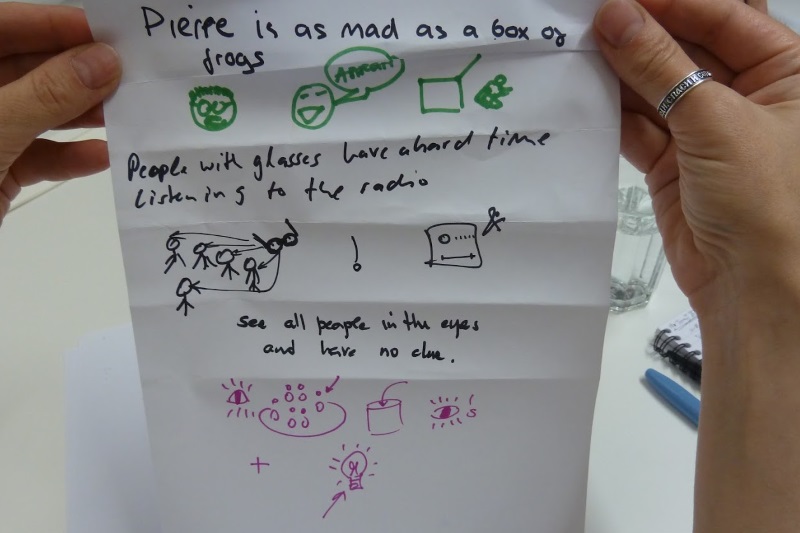 Pierre is as mad as a box of
frogs
People with glasses have a hard time
listening to the radio
see all people in the eyes
and have no clue.
+
's